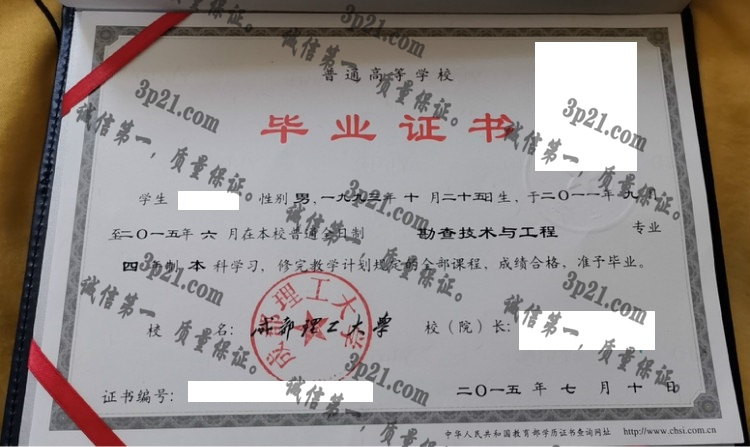 普通高等学校
毕业证书
学生 性别 男，一九九三年 十 月 二十五日生，于二〇一一年 九月
至二〇一五年 六 月在本校普通全日制 勘查技术与工程 专业
四 年制 本 科学习，修完教学计划规定的全部课程，成绩合格，准予毕业。
校 名：成都理工大学 校（院）长：
成都理工大学
证书编号： 二〇一五 年 七 月 十 日
中华人民共和国教育部学历证书查询网址 http://www.chsi.com.cn
3p21.com
诚信第一，质量保证。
3p21.com
诚信第一，质量保证。
3p21.com
诚信第一，质量保证。
3p21.com
诚信第一，质量保证。
3p21.com
诚信第一，质量保证。
3p21.com
诚信第一，质量保证。
3p21.com
诚信第一，质量保证。
3p21.com
诚信第一，质量保证。
3p21.com
诚信第一，质量保证。